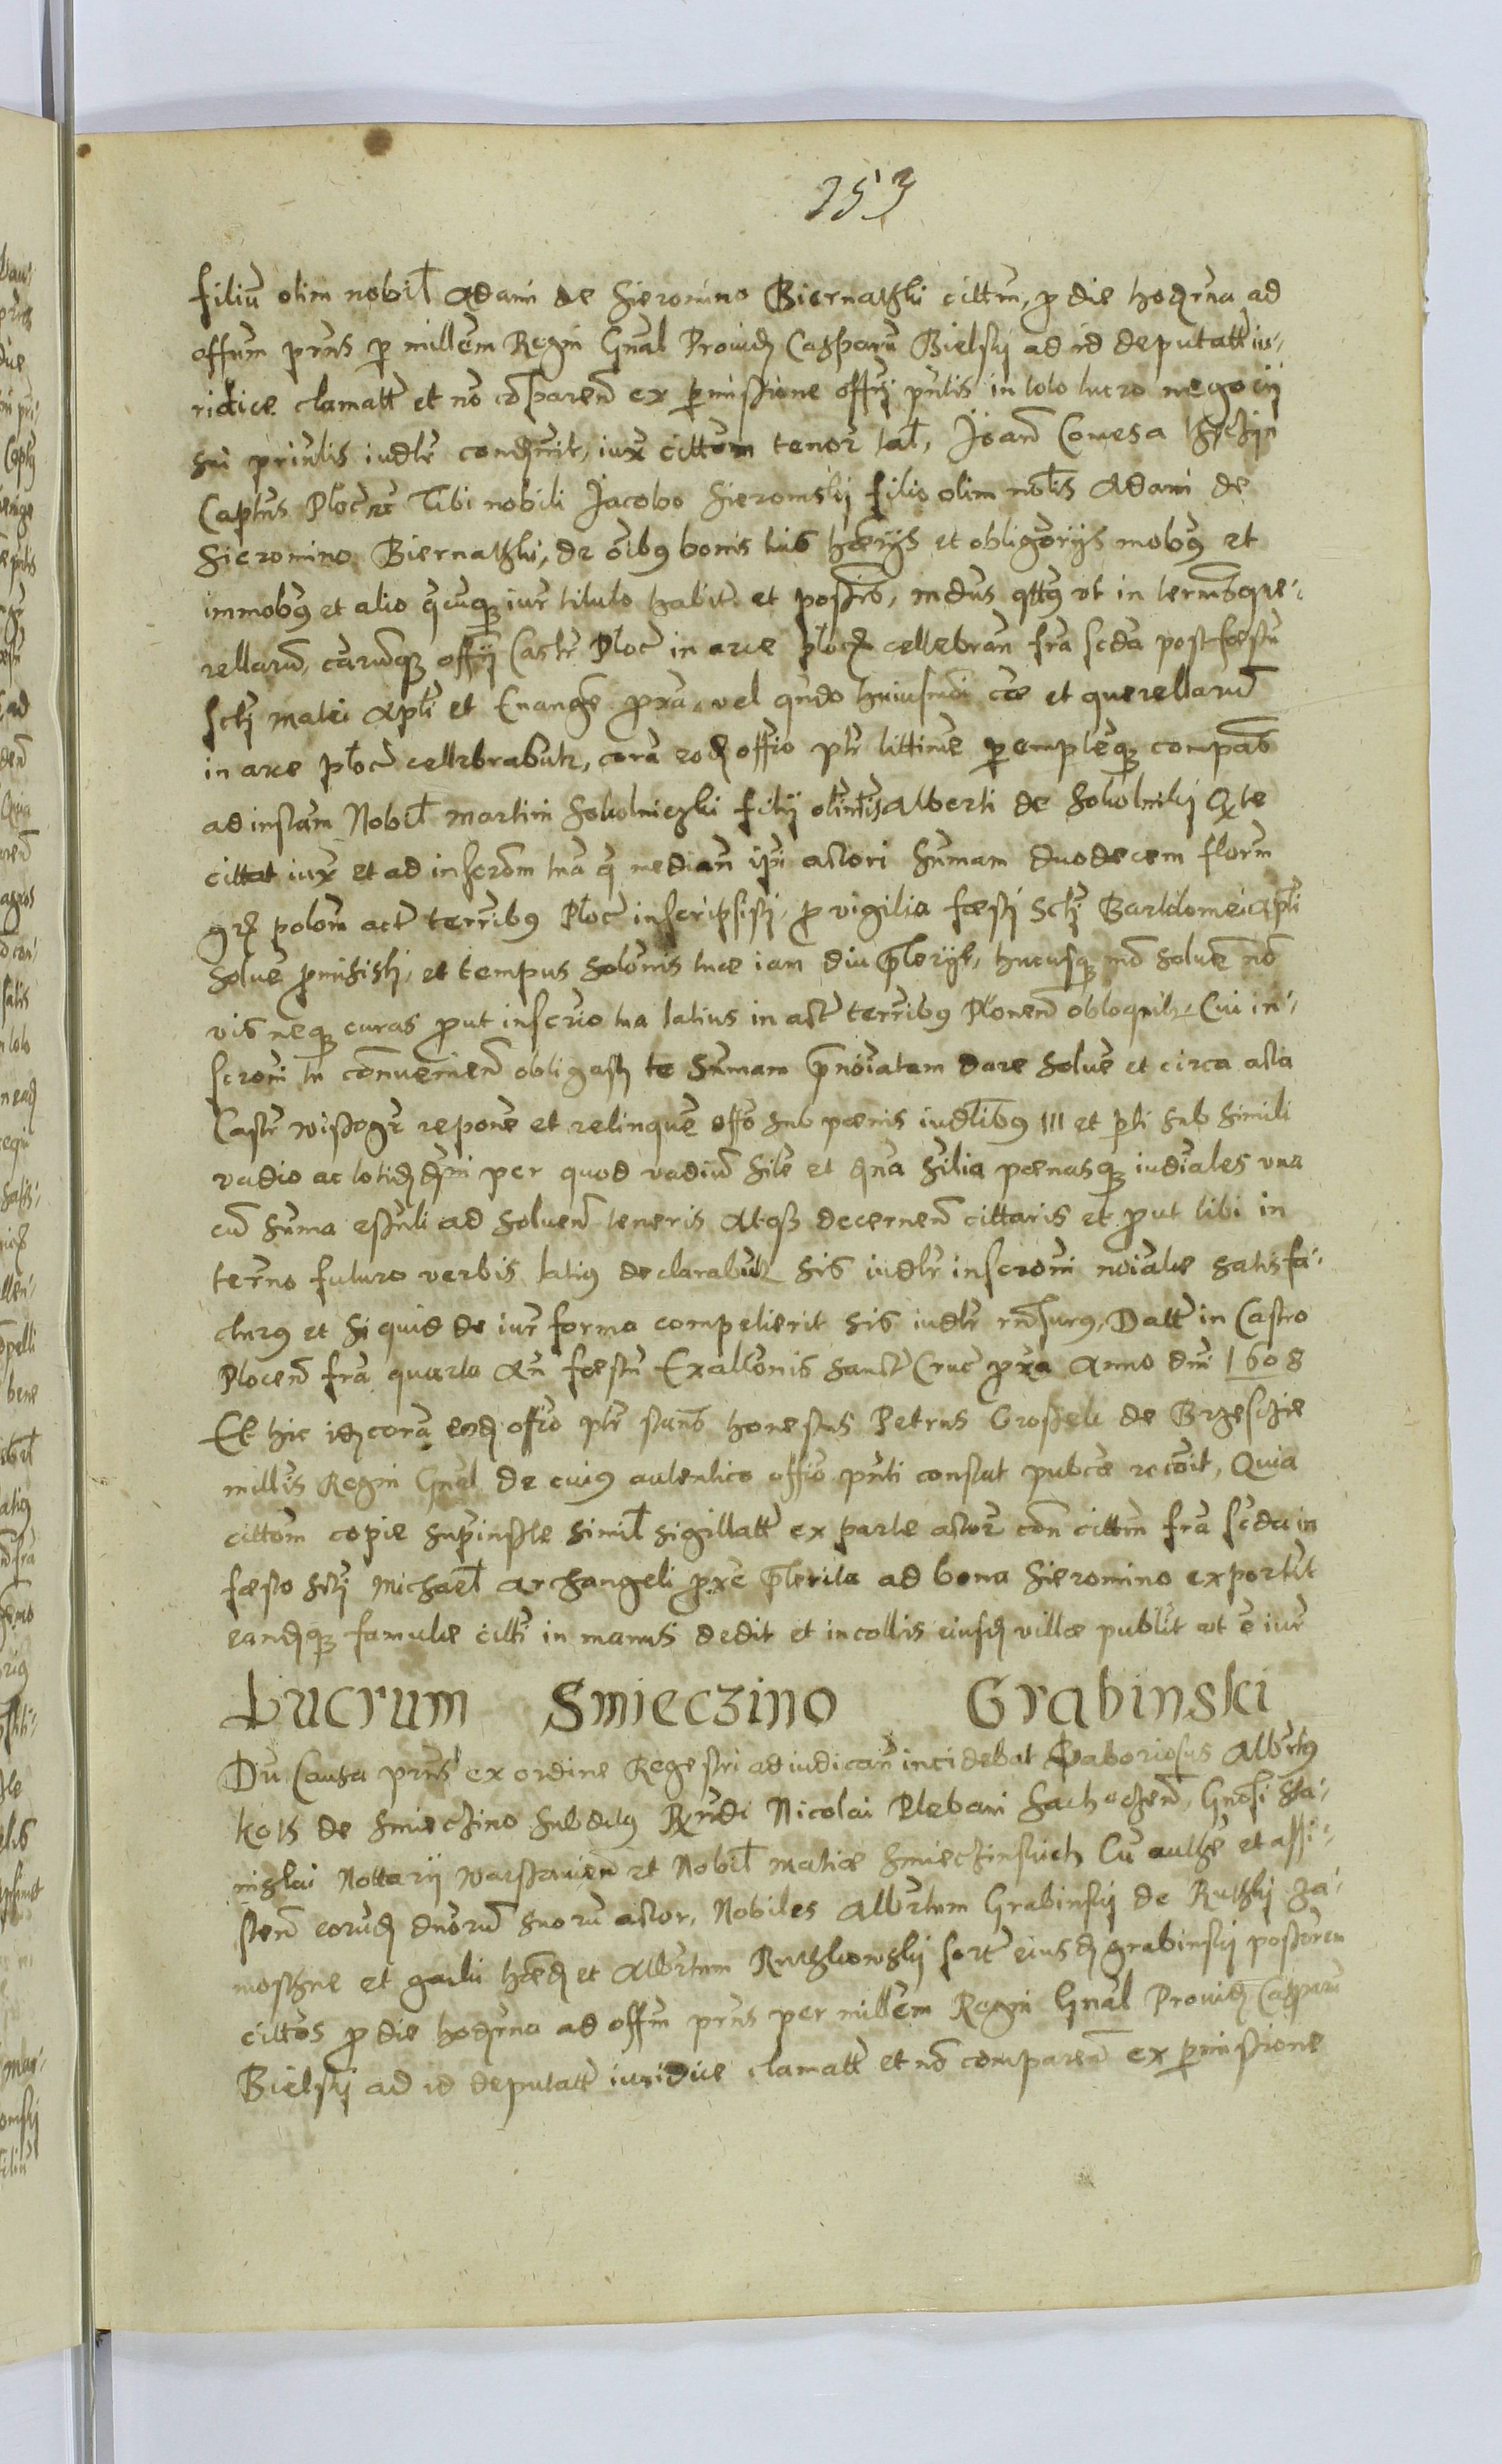 253
filiū olim nobil Adami de Sieromino Biernathski cittm, p die hodrna ad
offum prns p millem Regin Gnal Prouid Casparu Bielskij ad id deputatt iu-
ridice clamatt et nō cōparen ex pmissione offij pntis in toto lucro negocij
sui priulis iudlr condenit, iux cittom tenor tal, Joan Comes a
Captns Ploc rc Tibi nobili Jacobo Sieromskij filio olim nolis Adami de
Sieromino Biernathski, de oibus bonis tuis haerijs et obligorijs mobus et
immobus et alio qcuqz iur titulo habitis et possis, mdus qttus vt in termis que-
rellarū, carumqz offij Castr Ploc in arce ploc cellebran fra scda post faestu
scti Matei Apli et Euange pxa, vel qndo huiusmodi cae et querellarū
in arce ploc cellebrabutr, corā eod offio pltr littime pempteqz compas
ad instam Nobil Martini Sokolniczki filij olim nlis Alberti de Sokolniki Q te
cittat iux et ad inscrom tuā q median ipi actori summam duodecem florm
grs polom act terribus Ploc inscripsisti, p vigilia faesti scti Bartolomei Apli
soluē pmisisti, et tempus solomis tuae iam diu pterijt, hucusqz mō soluē nō
vis neqz curas put inscrio tua latius in act terribus Plonen obloquitr, Cui in-
scroni tu conuenien obligasti te summam pnoiatam dare soluē et circa acta
Castr Wissogr reponē et relinquē offo sub paenis iudlibus III et pti sub simili
vadio ac totid dni per quod vadiū sile et dna silia paenasqz iudiales vna
cū summa essnli ad soluen teneris Atqz decernen cittaris et put tibi in
termo futuro verbis latius declarabitr sis iudlr inscroni noiatae satisfa-
cturus et si quid de iur forma competierit sis iudlr rnsurus, Datt in Castro
Plocen fra quarta An faestu Exaltomis sanct Cruc pxa Anno dni 1608
Et hic id corā eod offio pltr stans honestus Petrus Grosseli de Brzesczie
millis Regin Gnal de cuius autentico offio pnti constat pubce recoit, Quia
cittom copie supinste simil sigillatt ex parte actor con cittm fra scda in
faesto scti Michael Archangeli pxe pterita ad bona Sieromino exportit
eandqz famulae citti in manus dedit et incollis eiusd villae publit vt e iur
Lucrum Smieczino Grabinski
Dū Causa prns ex ordine Regestri ad iudican incidebat Laboriosus Albrtus
Koth de Smieczino subditus Rndi Nicolai Plebani Sachoczen, Gnosi Sta-
nislai Nottarij Warssauien et Nobil Matiae Smieczinskich Cū authe et assi-
sten eorūd dnorū suorū actor, Nobiles Albrtum Grabinskij de Ruthki Za-
moschne et haed et Albrtum Ruthkowskij sort eiusd grabinskij possorem
cittos p die hodrna ad offm prns per millem Regin Gnal Prouid Casparu
Bielskij ad id deputatt iuridice clamatt et nō comparen ex pmissione